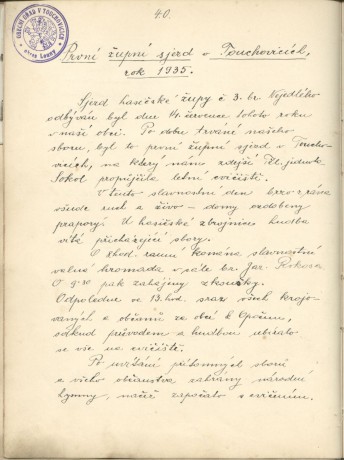 40.
OBECNÍ ÚŘAD V TOUCHOVICÍCH
okres Louny
První župní sjezd v Touchovicích,
rok 1935.
Sjezd hasičské župy č. 3. br. Vojedlého
odbýván byl dne 14. července tohoto roku
v naší obci. Po dobu trvání našeho
sboru, byl to první župní sjezd v Toucho-
vicích, na který nám zdejší Děl. jednota
Sokol propůjčila letní cvičiště.
V tento slavnostní den brzo z rána
všude ruch a živo - domy ozdobeny
prapory. U hasičské zbrojnice hudba
vítá přicházející sbory.
O 8 hod. ranní konána slavnostní
valná hromada v sále br. Jar.
O 9.30 pak zahájeny zkoušky.
Odpoledne ve 13. hod. sraz všech krojo-
vaných a občanů za obcí k Opočnu,
odkud průvodem s hudbou ubíralo
se vše na cvičiště.
Po uvítání přítomných sborů
a všeho občanstva zahrány národní
hymny, načež započato s cvičením.